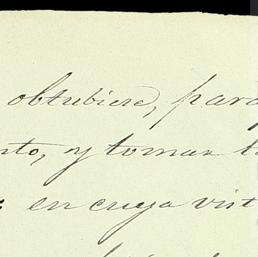 obtubiese, para
nto, y tomar
en cuya vist